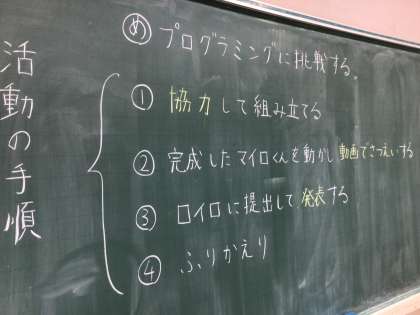 活動の手順
め プログラミングに挑戦する。
① 協力して組み立てる
② 完成したマイロくんを動かし動画でさつえいする
③ ロイロに提出して発表する
④ ふりかえり